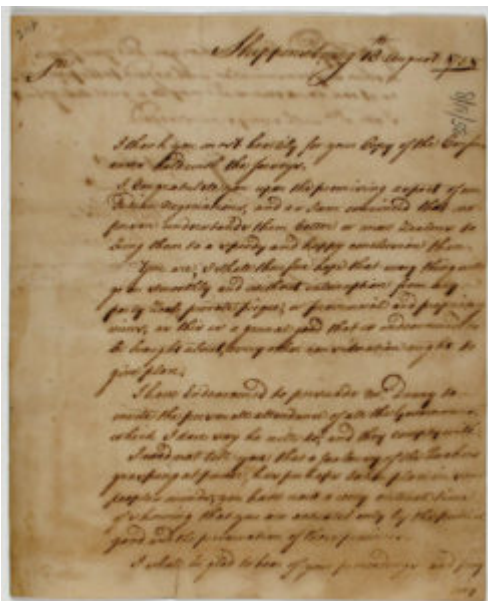 Shippensburg 18th August 1758
Sir
I thank you most heartily for your Copy of the Confer
ences held with the Indians.
I Congratulate you upon the promising aspect of our
Indian Negotiations, and as I am convinced that no
person understands them better or more Zealous to
bring them to a speedy and happy conclusion than
You are; I shall therefore hope that every thing will
go on smoothly and without interruption from any
party Zeal, private pique, or
views, as this is a general good that is endeavoured to
be brought about, every other consideration ought to
give place.
I have endeavoured to persuade Mr. Denny to
invite the personal attendance of all the Governours,
which I dare say he will do, and they comply with.
I need not tell you, that a jealousy of the Quakers
grasping at power, has perhaps taken place in
peoples minds; you have now a very
of showing that you are actuated only by the publick
good and the preservation of these provinces.
I shall be glad to hear of your proceedings and